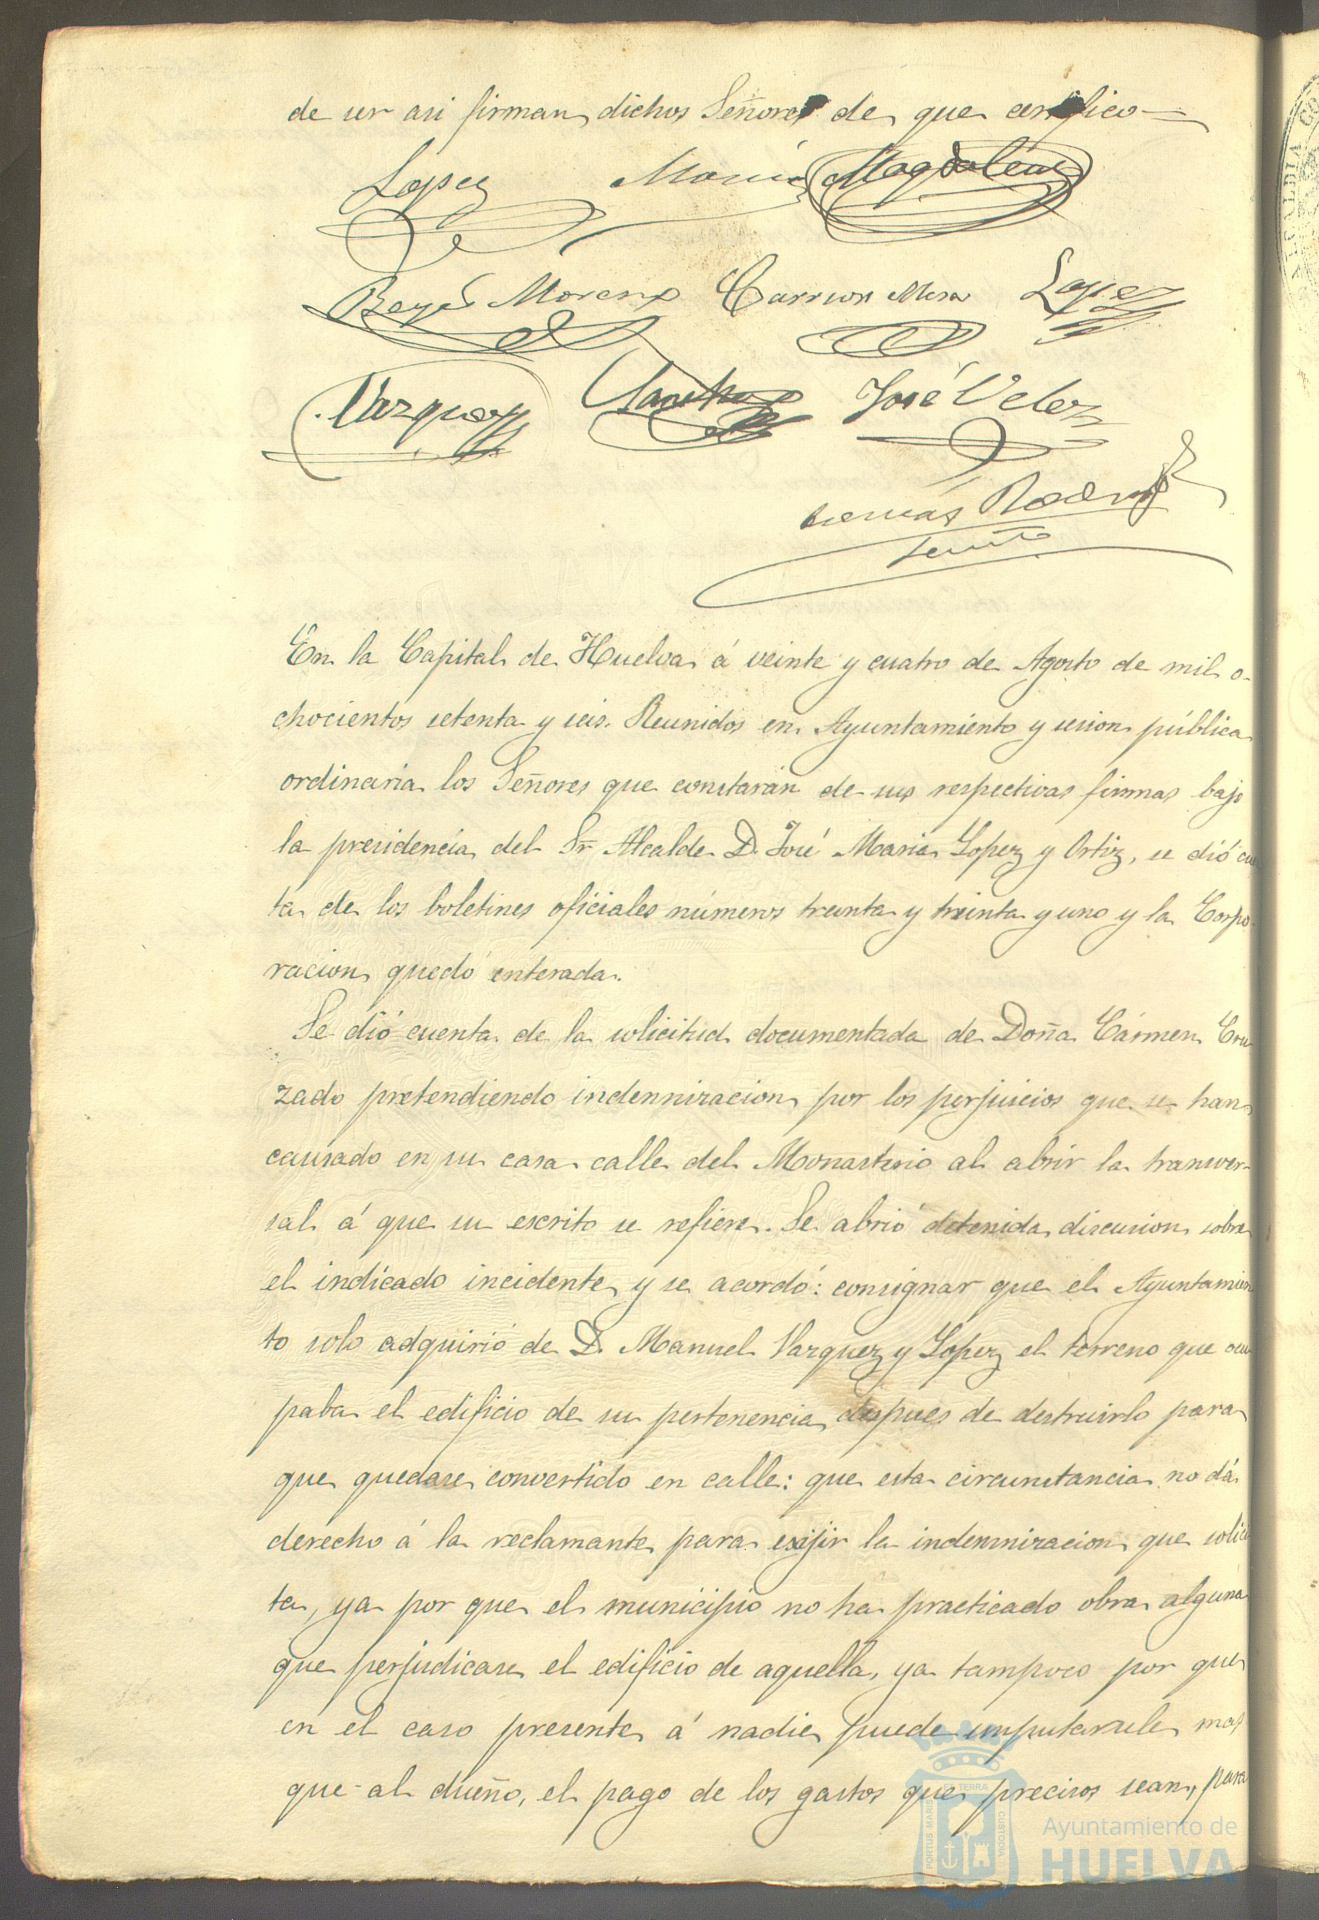 de ser asi firman dichos Señores de que certifico
Lopez Magdalena
Moreno Carrion Mora Lopez
Vazquez Sanchez José Velez
Tomás
En la Capital de Huelva á veinte y cuatro de Agosto de mil o-
chocientos setenta y seis. Reunidos en Ayuntamiento y sesion pública
ordinaria los Señores que constarán de sus respectivas firmas bajo
la presidencia del Sr. Alcalde D. José Maria Lopez y Ortiz, se dió cuen
ta de los boletines oficiales números treinta y treinta y uno y la Corpo-
racion quedó enterada.
Se dió cuenta de la solicitud documentada de Doña Cármen Cru
zado pretendiendo indemnizacion por los perjuicios que se han
causado en su casa calle del Monasterio al abrir la transver-
sal á que su escrito se refiere. Se abrió detenida discusion sobre
el indicado incidente y se acordó: consignar que el Ayuntamien
to solo adquirió de D. Manuel Vazquez y Lopez el terreno que ocu
paba el edificio de su pertenencia despues de destruirlo para
que quedase convertido en calle: que esta circunstancia no dá
derecho á la reclamante para exijir la indemnizacion que solici
ta, ya por que el municipio no ha practicado obra alguna
que perjudicase el edificio de aquella, ya tampoco por que
en el caso presente á nadie puede imputarsele mas
que al dueño, el pago de los gastos que precisos sean, para
PORTUS MARIS ET TERRA CUSTODIA
Ayuntamiento de
HUELVA
ALCALDIA CO